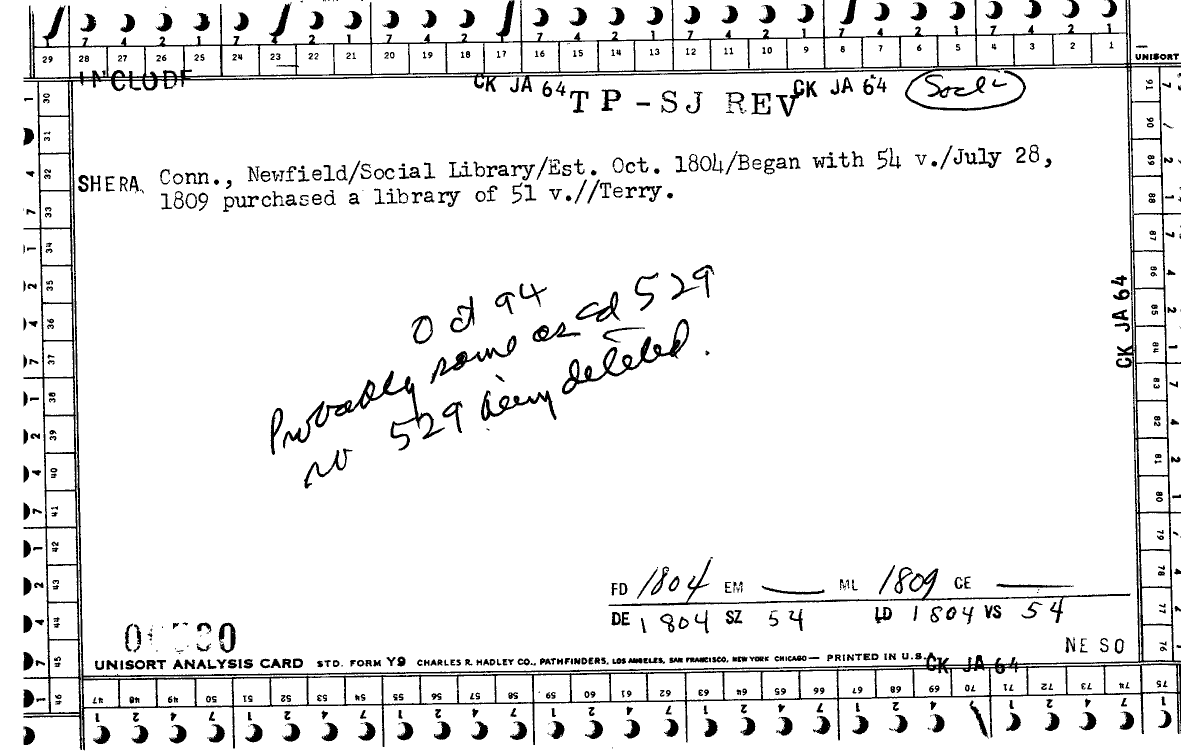 7 4 2 1 7 4 2 1 7 4 2 1 7 4 2 1 7 4 2 1 7 4 2 1
29 28 27 26 25 24 23 22 21 20 19 18 17 16 15 14 13 12 11 10 9 8 7 6 5 4 3 2 1
UNISORT
INCLUDE CK JA 64 TP-SJ REV CK JA 64
SHERA Conn., Newfield/Social Library/Est. Oct. 1804/Began with 54 v./July 28,
1809 purchased a library of 51 v.//Terry.
Oct 94
Probably same as cd 529
so 529 being deleted.
CK JA 64
FD 1804 EM — ML 1809 CE —
DE 1804 SZ 54 LD 1804 VS 54
NE SO
UNISORT ANALYSIS CARD STD. FORM Y9 CHARLES R. HADLEY CO., PATHFINDERS, LOS ANGELES, SAN FRANCISCO, NEW YORK CHICAGO — PRINTED IN U.S.A.
CK JA 64
30 31 32 33 34 35 36 37 38 39 40 41 42 43 44 45 46
91 90 89 88 87 86 85 84 83 82 81 80 79 78 77 76 75
47 48 49 50 51 52 53 54 55 56 57 58 59 60 61 62 63 64 65 66 67 68 69 70 71 72 73 74